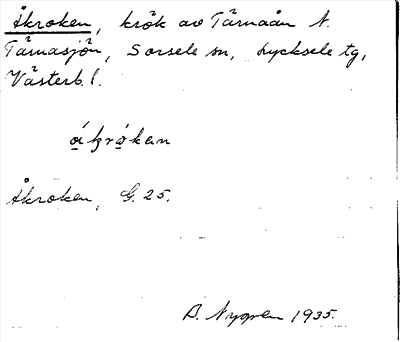 Åkroken, krök av Tärnaån N.
Tärnasjön, Sorsele sn, Lycksele tg,
Västerb. l.
Åkroken, G. 25.
B. Nygren 1935.